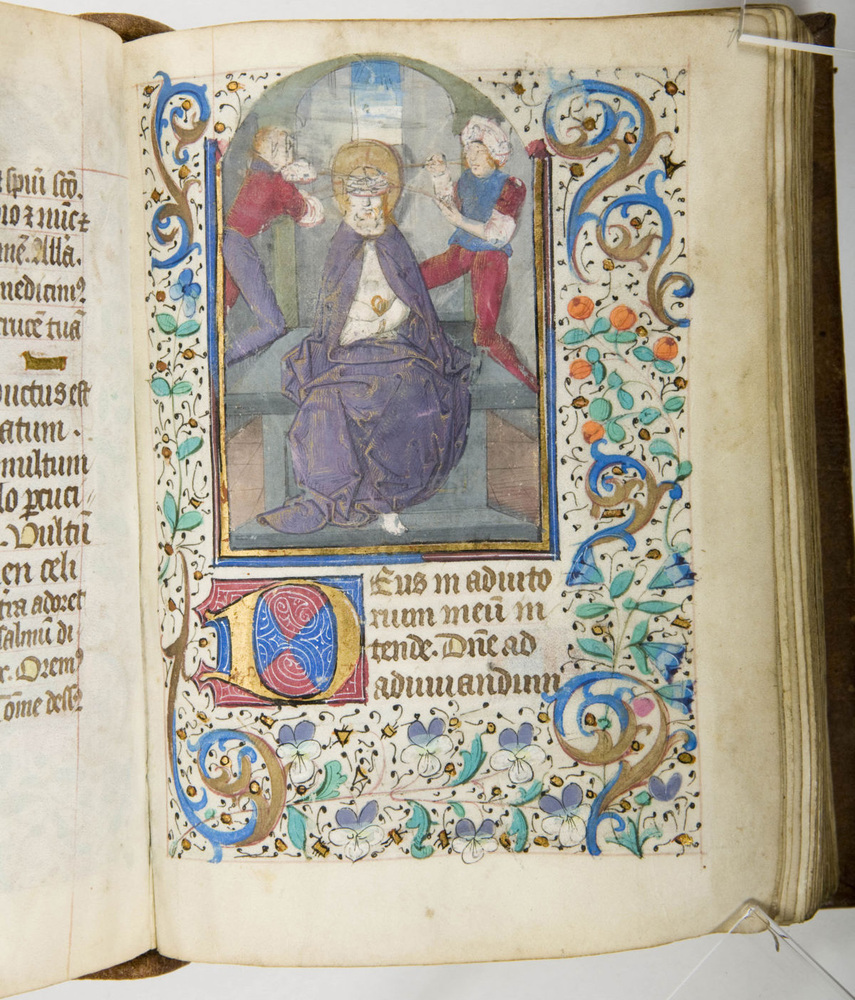 spiu sco.
nuc
me. Alla.
medicini
cruce tua
ductus est
atum.
multum
lo percuci
. Vultu
en celi
tra adoret
salmu di
Orem
ome
Deus in adiuto
rium meu in
tende. Dne ad
adiuuandum